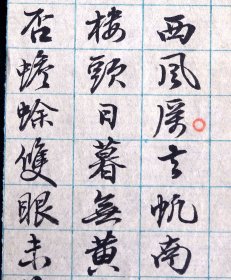 西風屢責帆南
樓頭日暮無黃
否蟾蜍雙眼未